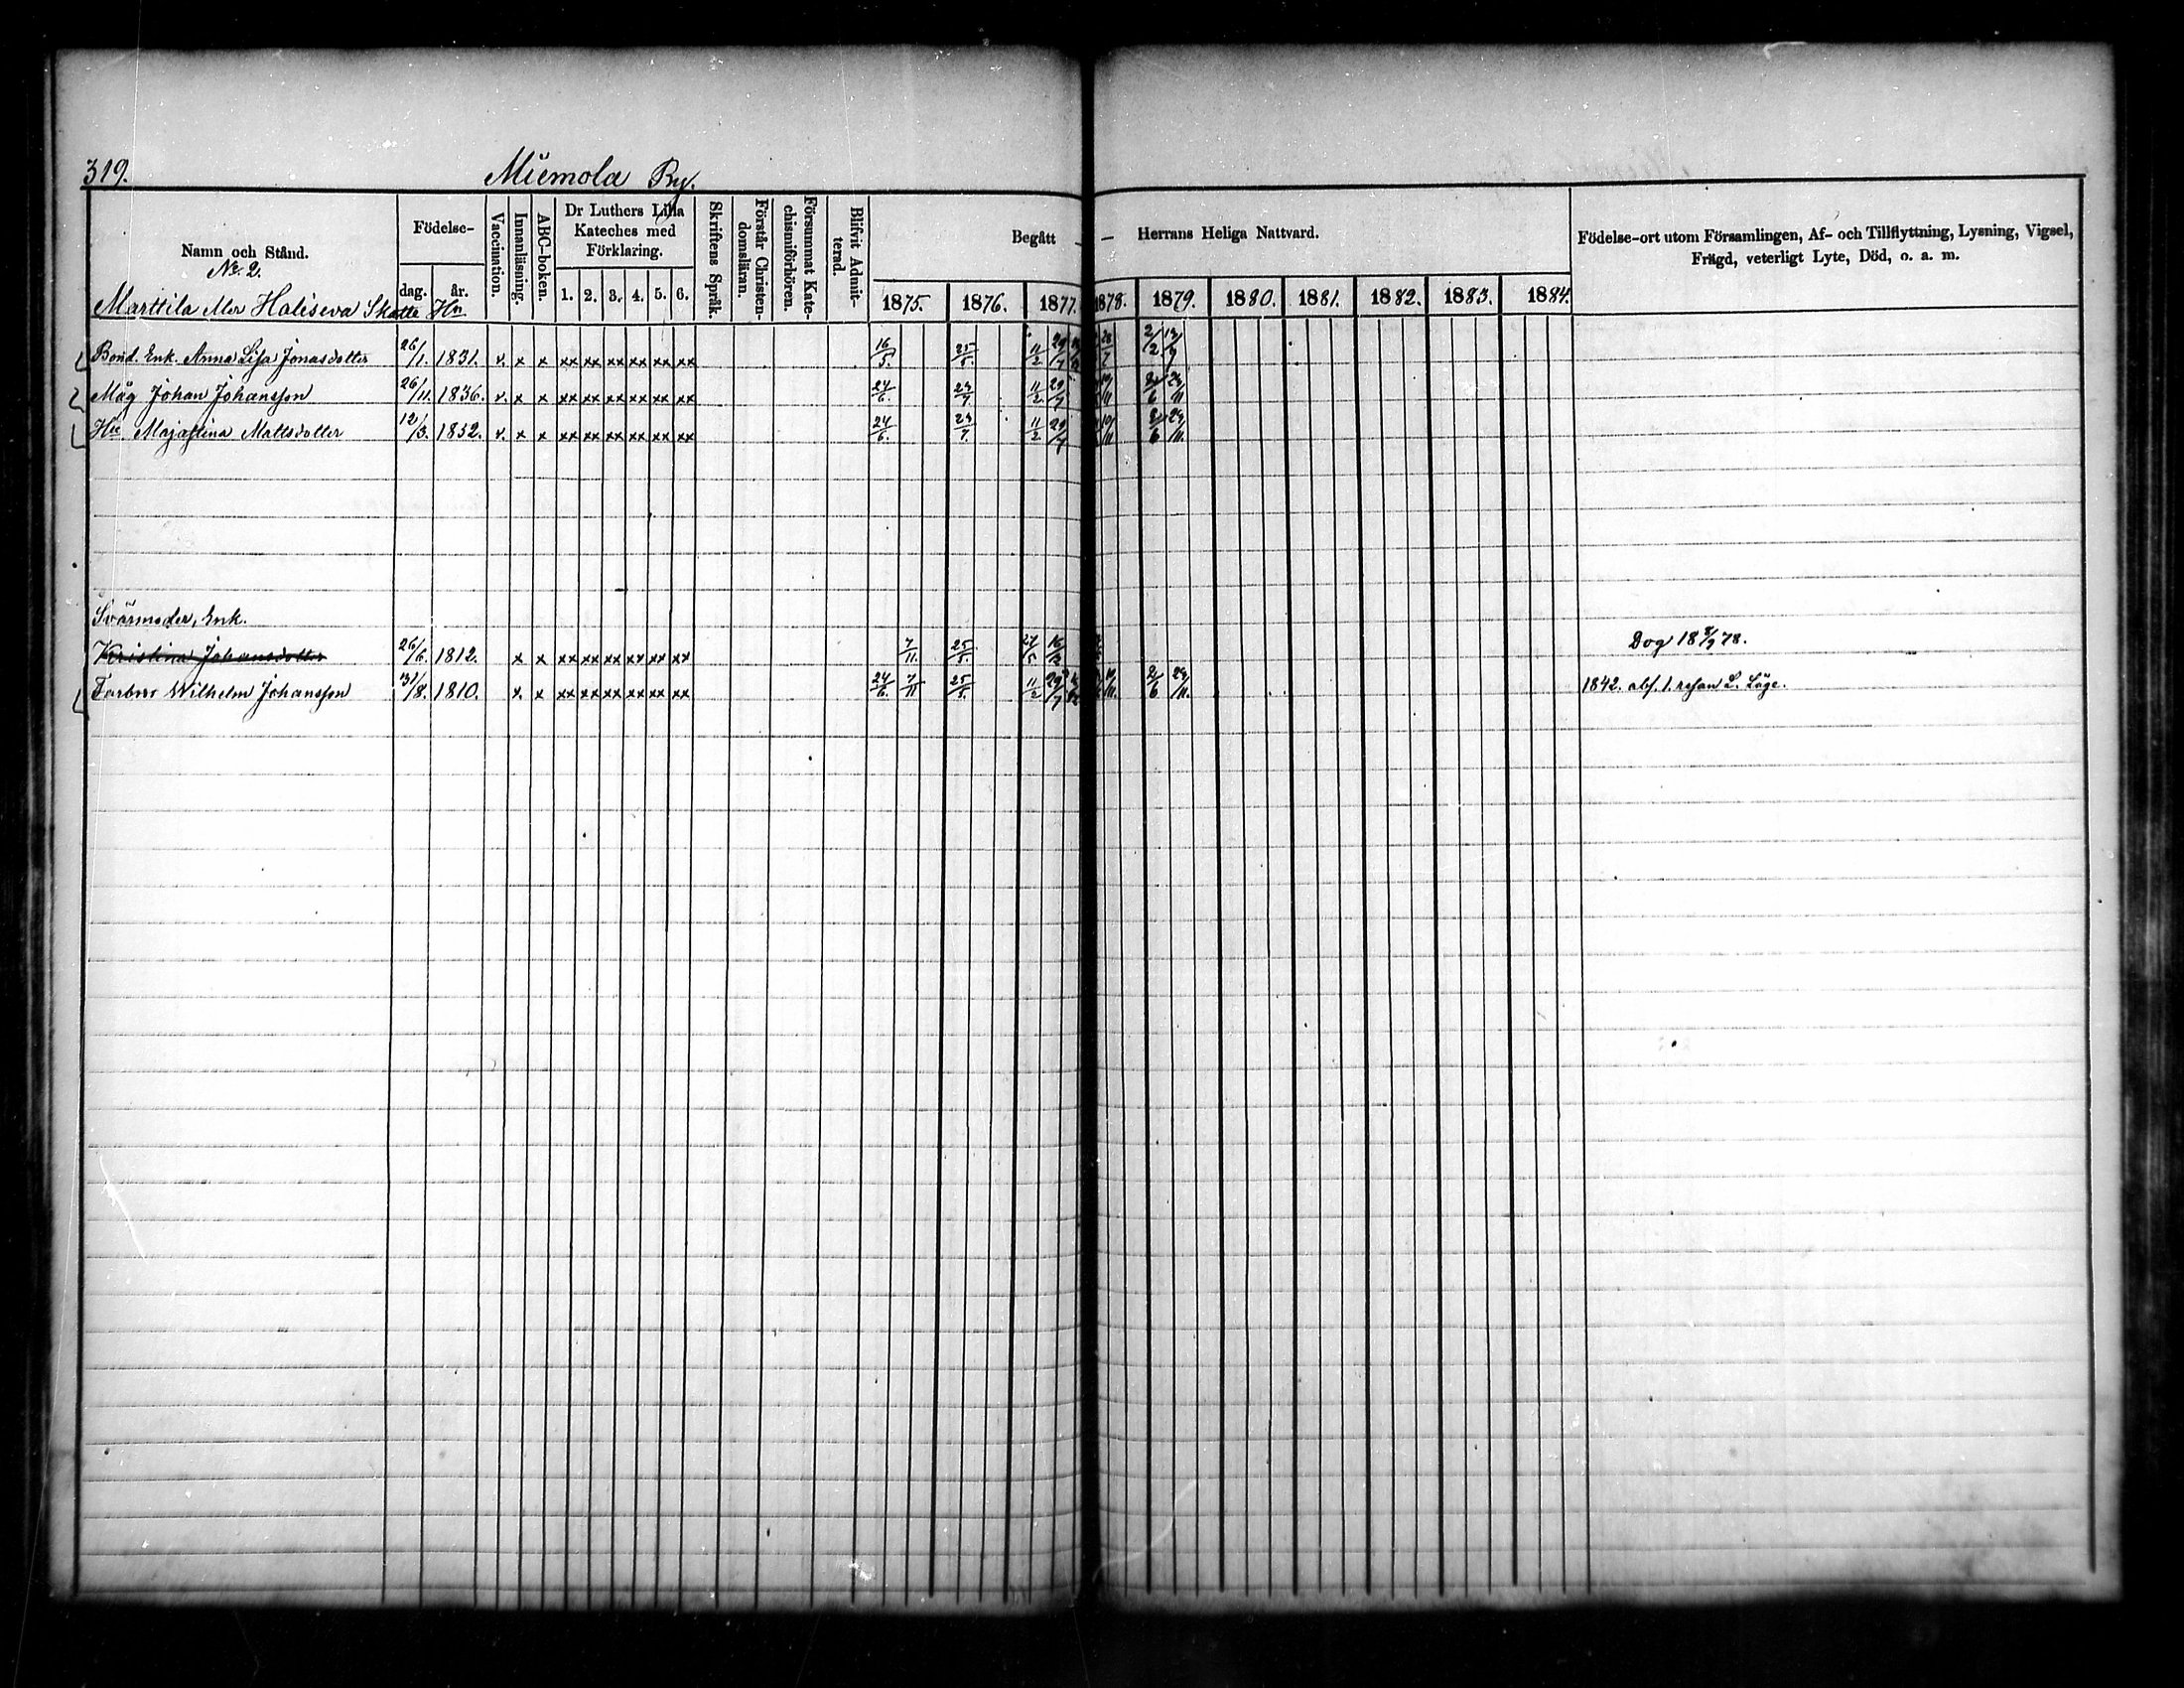 319.
Miemola By.
Namn och Stånd.
No. 2.
Marttila eller Haliseva Skatte Hn
Födelse-
dag.
år.
Vaccination.
Innanläsning.
ABC-boken.
Dr Luthers Lilla
Kateches med
Förklaring.
1. 2. 3. 4. 5. 6.
Skriftens Språk.
Förstår Christen-
domsläran.
Försummat Kate-
chismiförhören.
Blifvit Admit-
terad.
Begått — — Herrans Heliga Nattvard.
1875. 1876. 1877. 1878. 1879. 1880. 1881. 1882. 1883. 1884.
Födelse-ort utom Församlingen, Af- och Tillflyttning, Lysning, Vigsel,
Frägd, veterligt Lyte, Död, o. a. m.
Bond. Enk. Anna Lisa Jonasdotter 26/1. 1831. v. x x xx xx xx xx xx xx 16/5. 25/5. 11/2 29/7
Måg Johan Johansson 26/11. 1836. v. x x xx xx xx xx xx xx 24/6. 23/7 11/2 29/7
Hu. Majastina Mattsdotter 12/3. 1852. v. x x xx xx xx xx xx xx 24/6. 23/7. 11/2 29/7
Svärmoder, Enk.
Kristina Johansdotter 26/6. 1812. x x xx xx xx xx xx xx 7/11. 25/5. Dog 18 8/9 78.
Farbror Wilhelm Johansson 31/8. 1810. x. x xx xx xx xx xx xx 24/6. 7/11 25/5. 11/2 29/7 1842. abs. 1. resan L. Läge.